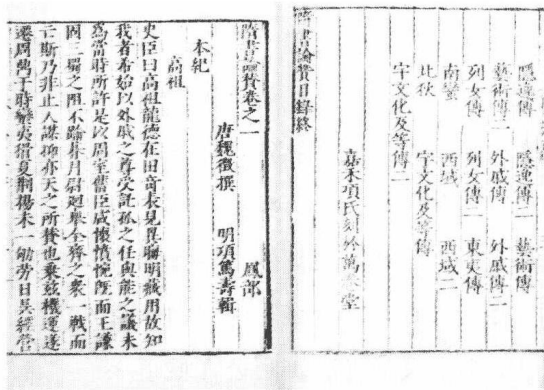 隱逸傳 隱逸傳二 藝術傳
藝術傳二 外戚傳 外戚傳二
列女傳 列女傳二 東夷傳
南蠻 西域 西域二
北狄 宇文化及等傳
宇文化及等傳二
嘉禾項氏刻於萬卷堂
隋書論贊目録終
隋書論贊卷之一 鳳部
唐魏徵撰 明項篤壽輯
本紀
高祖
史臣曰高祖龍德在田奇表見異晦明藏用故知
我者希始以外戚之尊受託孤之任與能之議未
爲當時所許是以周室舊臣咸懷憤惋旣而王謙
固三蜀之阻不踰朞月尉迥舉全齊之衆一戰而
亡斯乃非止人謀抑亦天之所贊也乘茲機運遂
遷周鼎于時蠻夷猾夏荆揚未一劬勞日昃經營